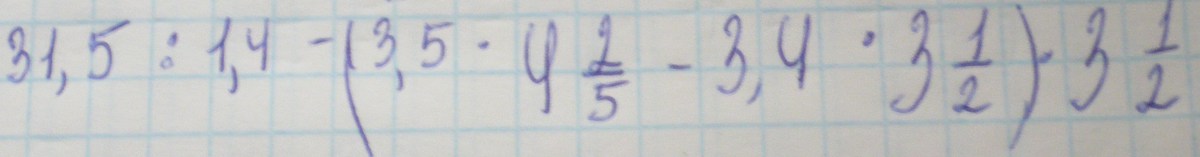 31,5 : 1,4 - (3,5 · 4 2/5 - 3,4 · 3 1/2) · 3 1/2